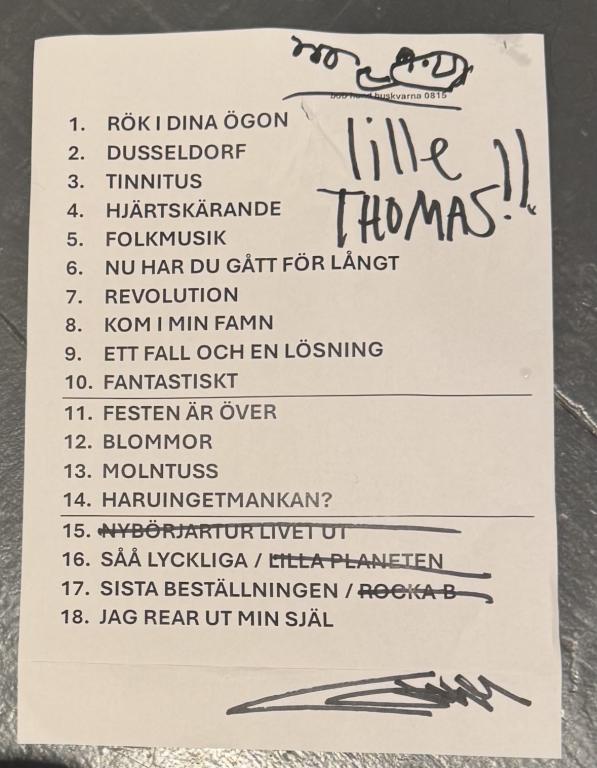 huskvarna 0815
lille
THOMAS!!
1. RÖK I DINA ÖGON
2. DUSSELDORF
3. TINNITUS
4. HJÄRTSKÄRANDE
5. FOLKMUSIK
6. NU HAR DU GÅTT FÖR LÅNGT
7. REVOLUTION
8. KOM I MIN FAMN
9. ETT FALL OCH EN LÖSNING
10. FANTASTISKT
11. FESTEN ÄR ÖVER
12. BLOMMOR
13. MOLNTUSS
14. HARUINGETMANKAN?
15. NYBÖRJARTUR LIVET UT
16. SÅÅ LYCKLIGA / LILLA PLANETEN
17. SISTA BESTÄLLNINGEN / ROCKA B
18. JAG REAR UT MIN SJÄL